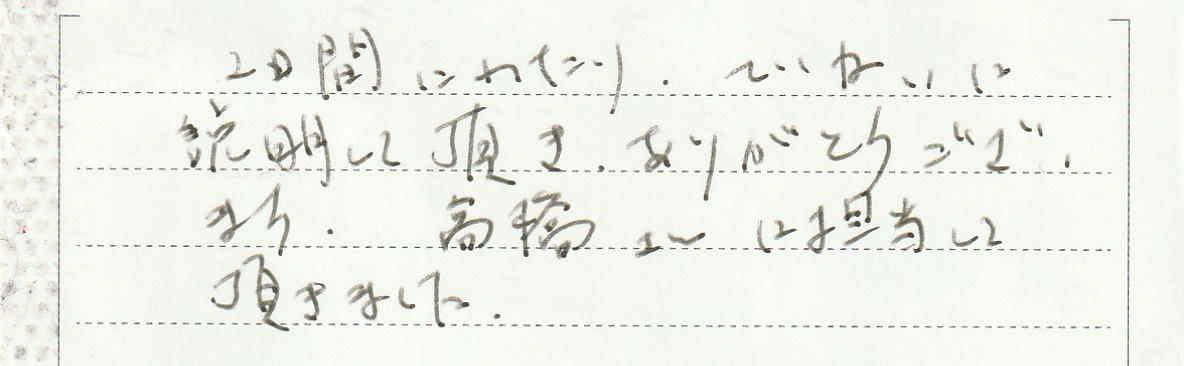 2日間にわたり、ていねいに
説明して頂き、ありがとうござい
ます。 高橋さんに担当して
頂きました。